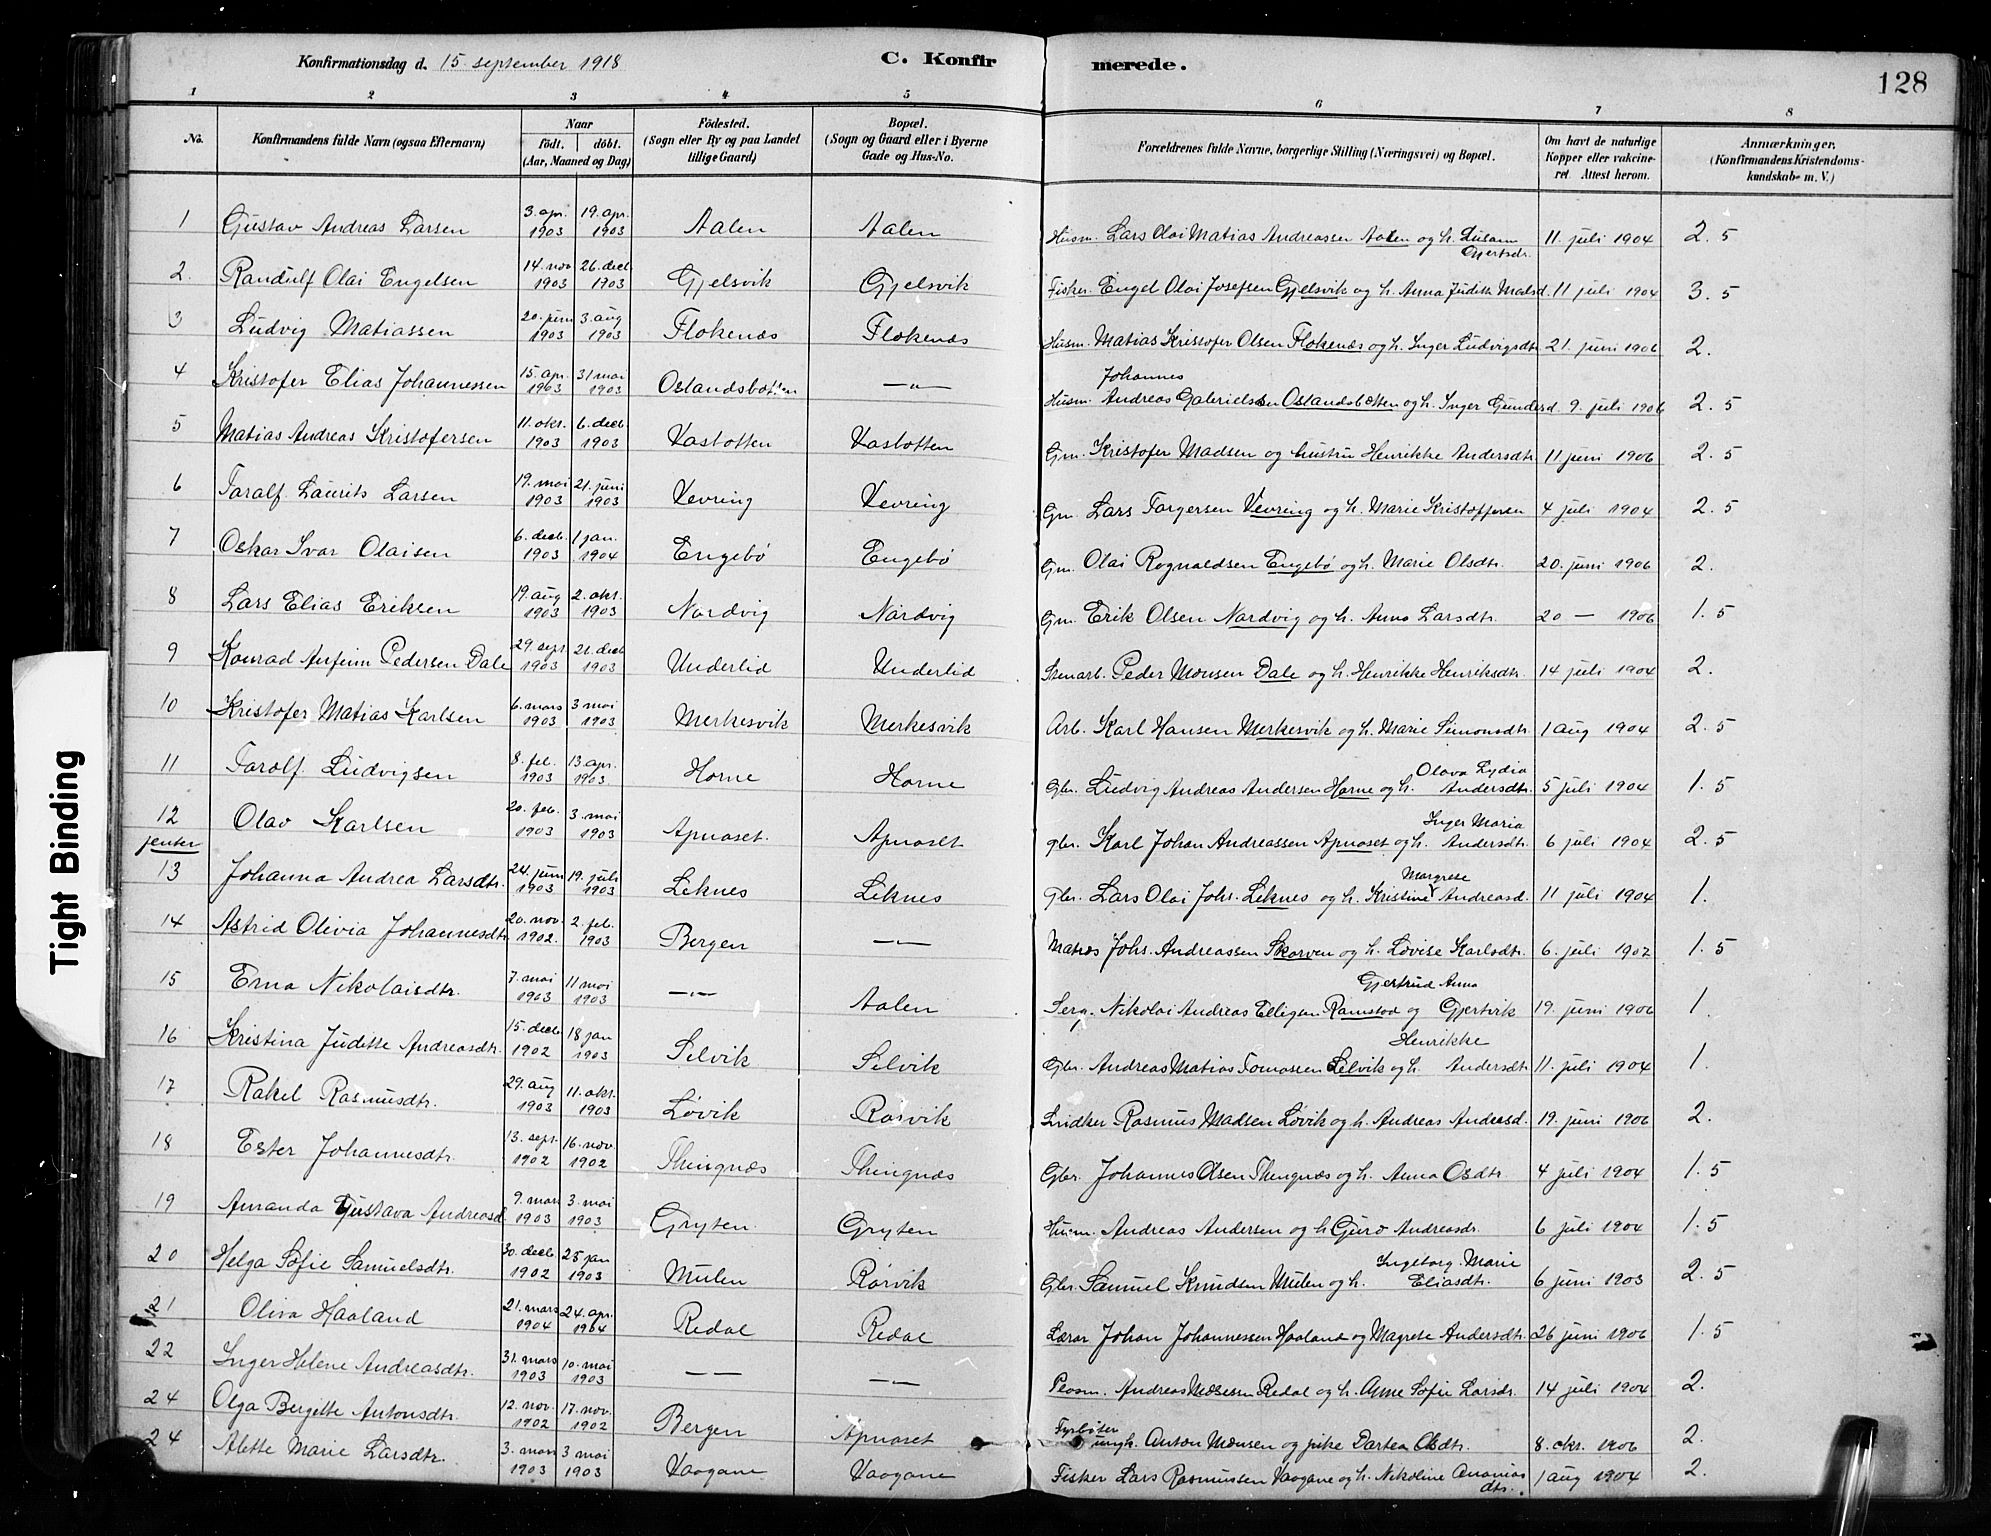 Konfirmationsdag d. 15 september 1918 C. Konfirmerede. 128
1 2 3 4 5 6 7 8
No. Konfirmandens fulde Navn (ogsaa Efternavn) Naar født. døbt. (Aar, Maaned og Dag) Fødested. (Sogn eller By og paa Landet tillige Gaard) Bopæl. (Sogn og Gaard eller i Byerne Gade og Hus-No. Forældrenes fulde Navne, borgerlige Stilling (Næringsvei) og Bopæl. Om havt de naturlige Kopper eller vakcineret. Attest herom. Anmærkninger. (Konfirmandens Kristendomskundskab m. V.)
1 Gustav Andreas Larsen 3. apr. 1903 19. apr. 1903 Aalen Aalen Husm. Lars Olai Matias Andreassen Aalen og h. Susann Gjertsdr. 11. juli 1904 2. 5
2. Randulf Olai Engelsen 14. nov 1903 26. dec. 1903 Gjelsvik Gjelsvik Fisker Engel Olai Josefsen Gjelsvik og h. Anna Judith Matsd. 11 juli 1904 3. 5
3 Ludvig Matiassen 20. juni 1903 3. aug 1903 Flokenæs Flokenæs Husm. Matias Kristofer Olsen Flokenæs og h. Inger Ludvigsdtr 21. juni 1906 2.
4 Kristofer Elias Johannessen 15. apr. 1903 31 mai 1903 Oslandsbotten —"— Husm. Johannes Andreas Gabrielsen Oslandsbotten og h. Inger Gundersd. 9. juli 1906 2. 5
5 Matias Andreas Kristofersen 11. okt. 1903 6. decb. 1903 Vasbotten Vasbotten Gm. Kristofer Madsen og hustru Henrikke Andersdtr 11 juni 1906 2. 5
6 Taralf Laurits Larsen 19. mai 1903 21. juni 1903 Vevring Vevring Gm. Lars Torgersen Vevring og h. Marie Kristoffersen 4 juli 1904 2. 5
7 Oskar Ivar Olaisen 6. decb. 1903 1 jan. 1904 Engebø Engebø Gm. Olai Rognaldsen Engebø og h. Marie Olsdtr. 20. juni 1906 2.
8 Lars Elias Eriksen 19. aug 1903 2. okt. 1903 Nordvig Nordvig Gm. Erik Olsen Nordvig og h. Anna Larsdtr. 20 — 1906 1. 5
9 Konrad Anfinn Pedersen Dale 29. sept 1903 21. decb 1903 Underlid Underlid Stenarb. Peder Monsen Dale og h. Henrikke Henriksdtr. 14 juli 1904 2.
10 Kristofer Matias Karlsen 6. mars 1903 3 mai 1903 Merkesvik Merkesvik Arb. Karl Hansen Merkesvik og h. Marie Simonsdtr. 1 aug 1904 2. 5
11 Taralf Ludvigsen 8. feb. 1903 13. apr. 1903. Horne Horne Gbr. Ludvig Andreas Andersen Horne og h. Olava Lydia Andersdtr. 5 juli 1904 1. 5
12 Olav Karlsen 20. feb. 1903 3. mai 1903 Apnaset. Apnaset gbr. Karl Johan Andreassen Apnaset og h. Inger Maria Andersdtr. 6 juli 1904 2. 5
jenter
13 Johanna Andrea Larsdtr. 24. juni 1903 19. juli 1903 Leknes Leknes Gbr. Lars Olai Johs. Leknes og h. Kristine Margrese Andreasd. 11 juli 1904 1.
14 Astrid Olivia Johannesdtr 20. nov. 1902. 2. feb. 1903 Bergen —"— Matros Johs. Andreassen Skorven og h. Lovise Karlsdtr. 6. juli 1907 1. 5
15 Erna Nikolaisdtr. 7. mai 1903 11 mai 1903 —"— Aalen Serg. Nikolai Andreas Elligsen Ramstad og Gjertrud Anna Gjertvik 19. juni 1906 1.
16 Kristina Juditte Andreasdtr. 15. decb 1902 18 jan 1903 Selvik Selvik Gbr. Andreas Matias Tomassen Selvik og h. Henrikke Andersdtr 11. juli 1904 1.
17 Rakel Rasmusdtr. 29. aug 1903 11. okt. 1903 Løvik Rørvik Rasmus Madsen Løvik og h. Andreas Andreasd. 19. juni 1906 2.
18 Ester Johannesdtr. 13. sept. 1902 16. nov. 1902 Thingnæs Thingnæs Gbr. Johannes Olsen Thingnæs og h. Anna Osdtr 4 juli 1904 1. 5
19 Amanda Gustava Andreasd. 9. mars 1903 3. mai 1903 Gryten. Gryten Husm. Andreas Andersen og h Guro Andreasdr. 6 juli 1904 1. 5
20 Helga Sofie Samuelsdtr. 30. decb. 1902 25 jan 1903 Mulen Rørvik Gbr. Samuel Knudsen Mulen og h. Ingeborg Marie Eliasdtr. 6 juni 1903 2. 5
21 Oliva Haaland 21. mars 1904 24. apr. 1904 Redal Redal Lærar Johan Johannessen Haaland og Magrete Andersdtr. 26 juni 1906 1. 5
22 Inger Helene Andreasdtr. 31. mars 1903 10. mai 1903 — — —"— Andreas Mosesen Redal og h. Anne Sofie Larsdr. 14 juli 1904 2.
24 Olga Bergitte Antonsdtr. 12. nov. 1902 17. nov. 1902 Bergen Apnaset Fyrbøter ungk. Anton Monsen og pike Dartea Olsdtr. 8. okt. 1906 2.
24 Alette Marie Larsdtr. 3. mars 1903 3 mai 1903 Vaagane Vaagane Fisker Lars Rasmussen Vaagane og h. Nikoline Ananias dtr. 1 aug 1904 2.
Tight Binding